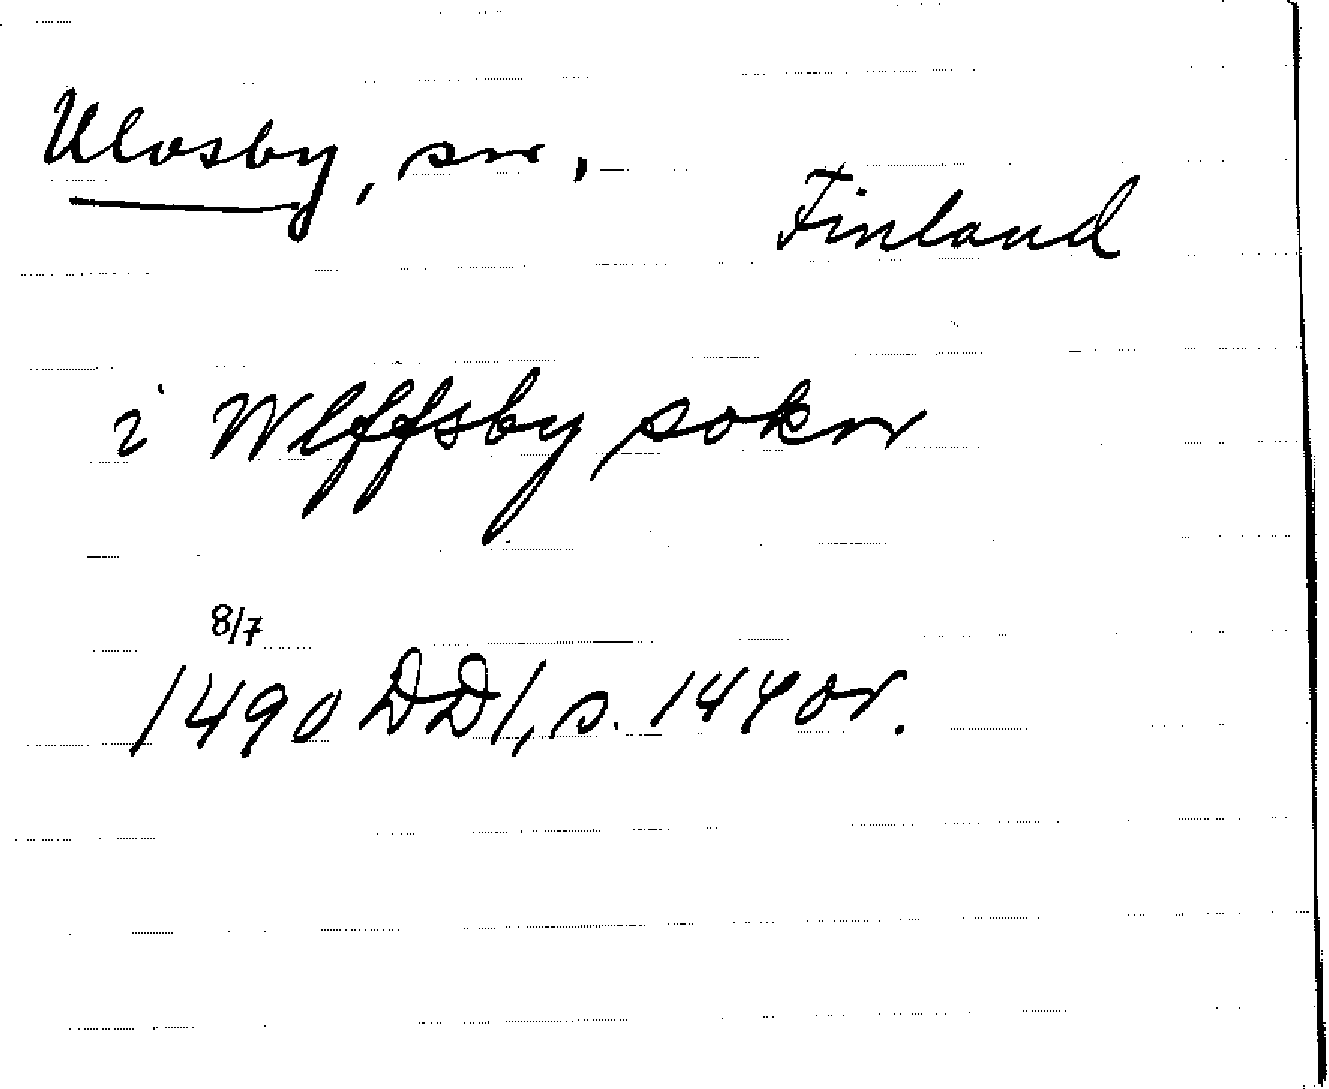 Ulvsby, sn,
Finland
i Wlffsby sokn
8/7
1490 DD1, s. 144 or.